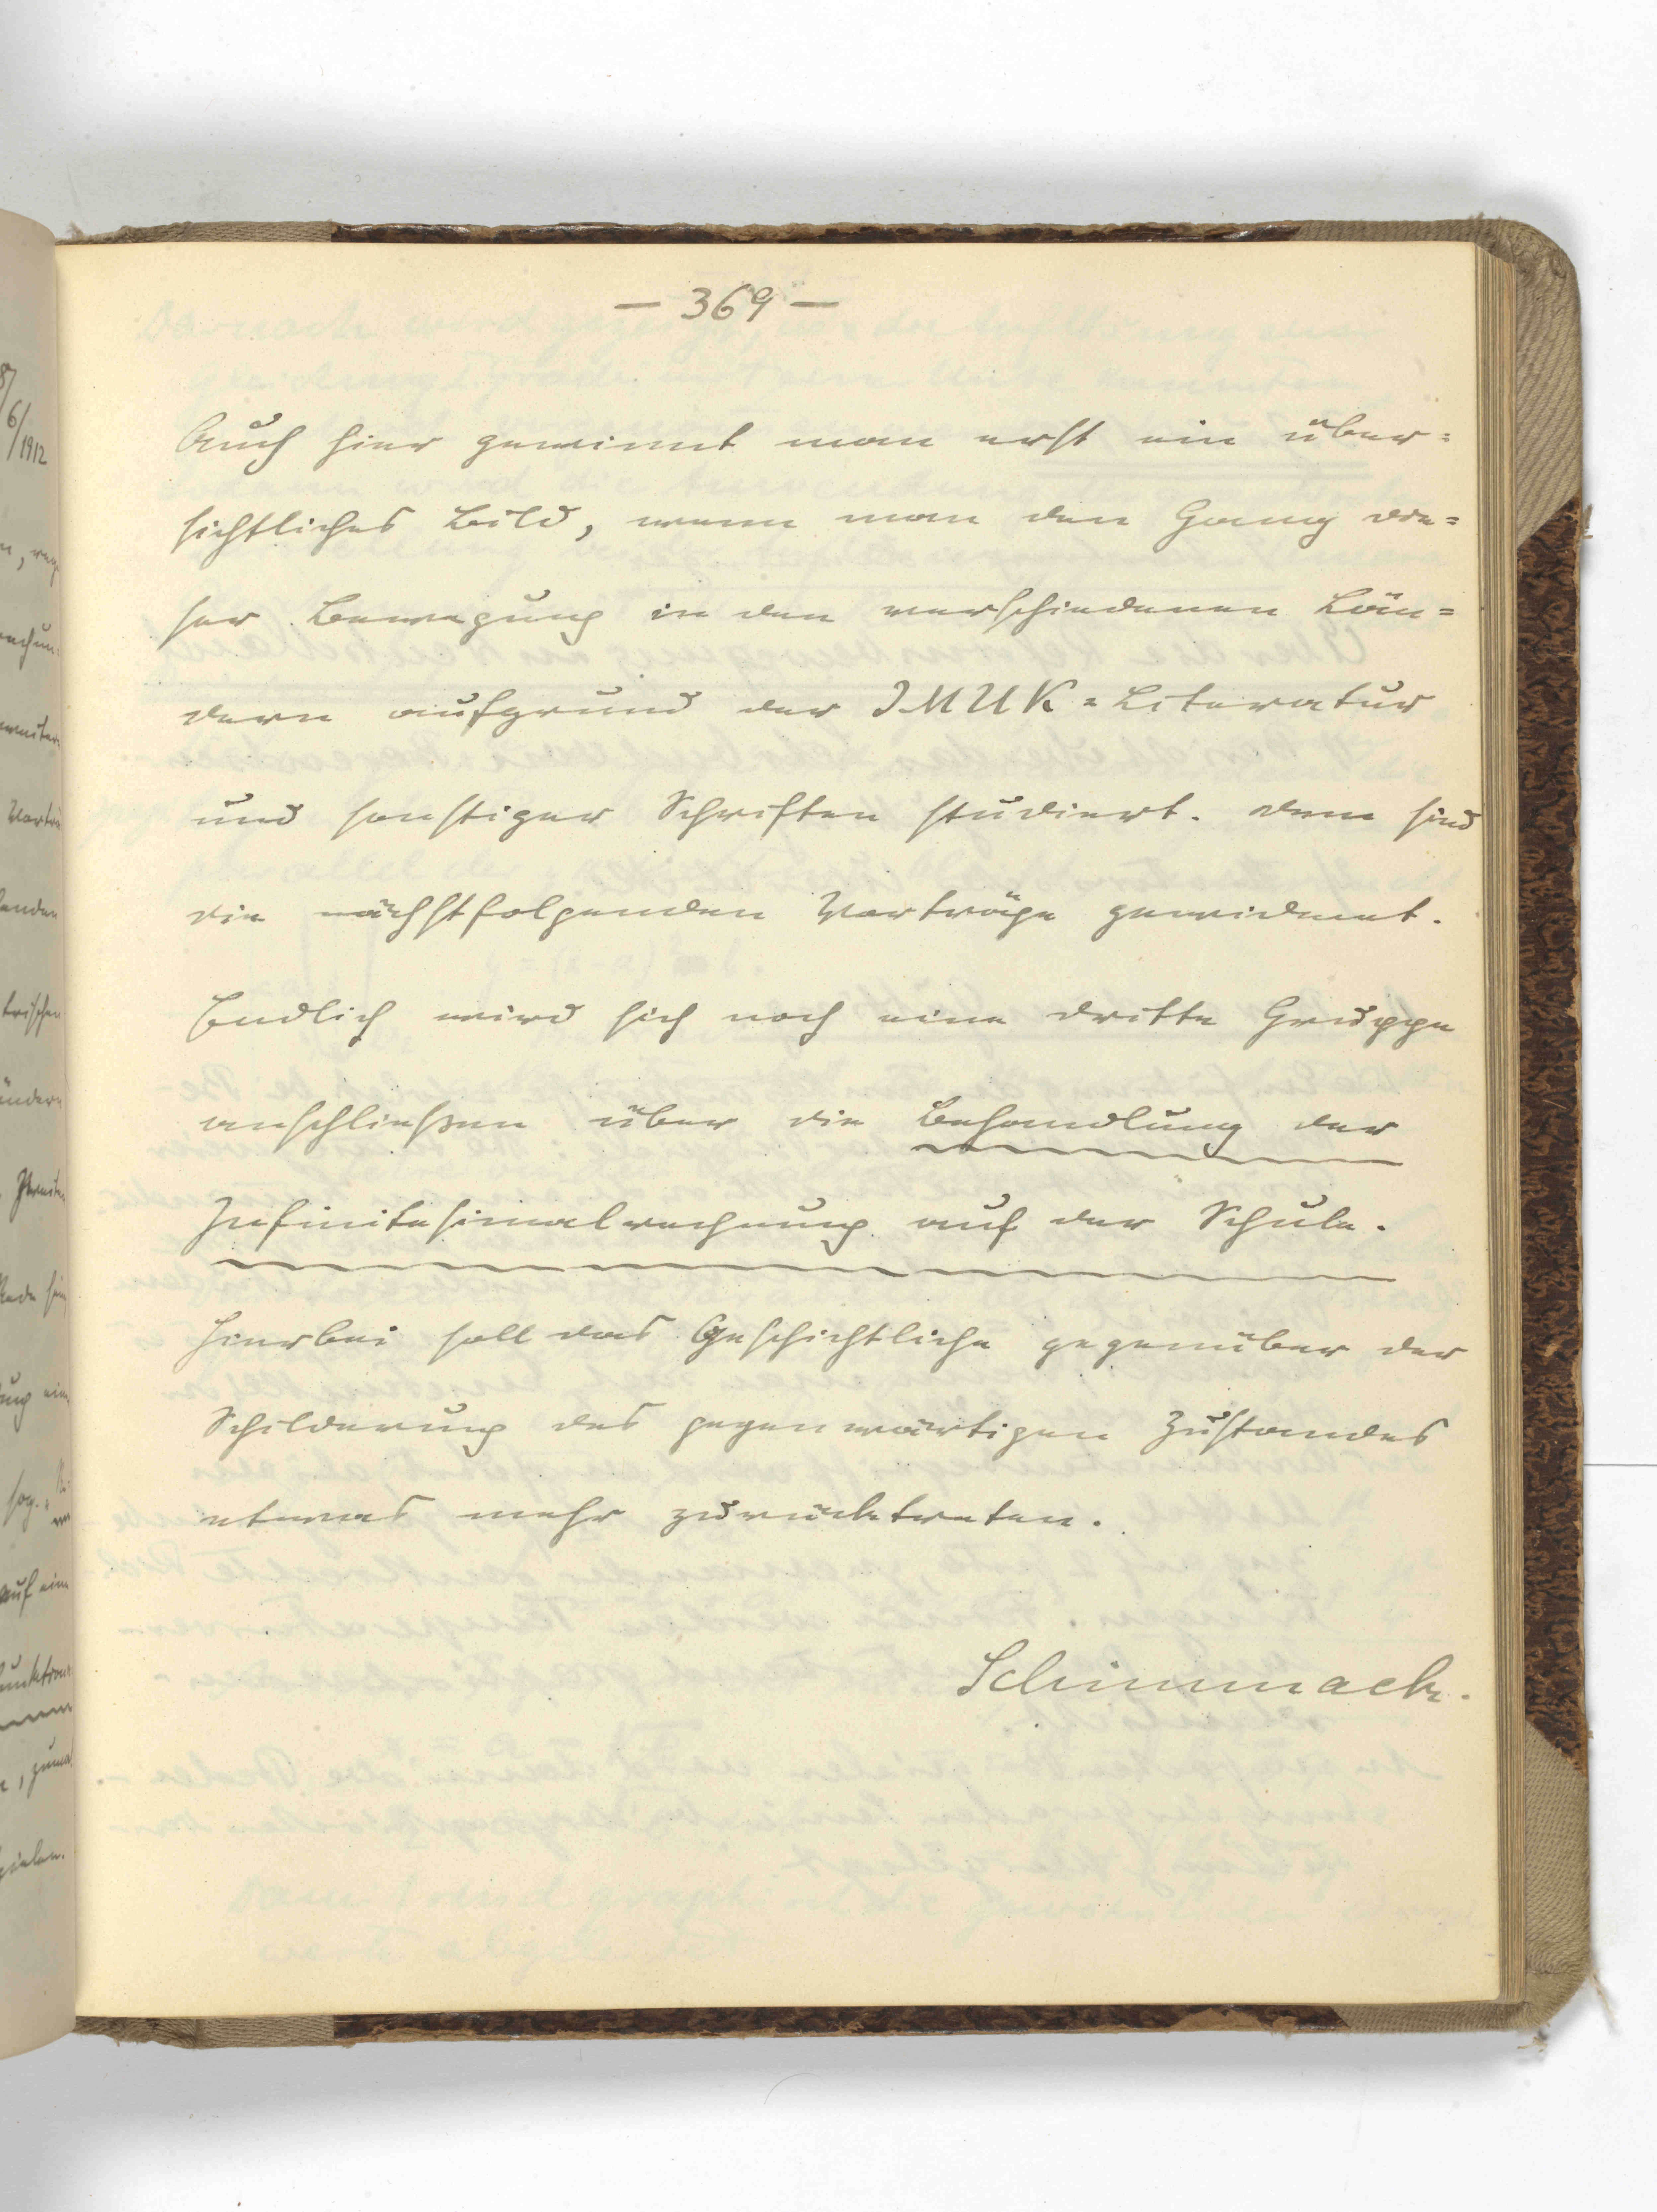 — 369 —
Auch hier gewinnt man erst ein über=
sichtliches Bild, wenn man den Gang die=
ser Bewegung in den verschiedenen Län=
dern aufgrund der IMUK=Literatur
und sonstiger Schriften studiert. Dem sind
die nächstfolgenden Vorträge gewidmet.
Endlich wird sich noch eine dritte Gruppe
anschließen über die Behandlung der
Infinitesimalrechnung auf der Schule.
Hierbei soll das Geschichtliche gegenüber der
Schilderung des gegenwärtigen Zustandes
etwas mehr zurücktreten.
Schimmack.
6/1912
auf eine